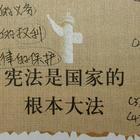 的义务
的权利
律的保护
宪法是国家的
根本大法